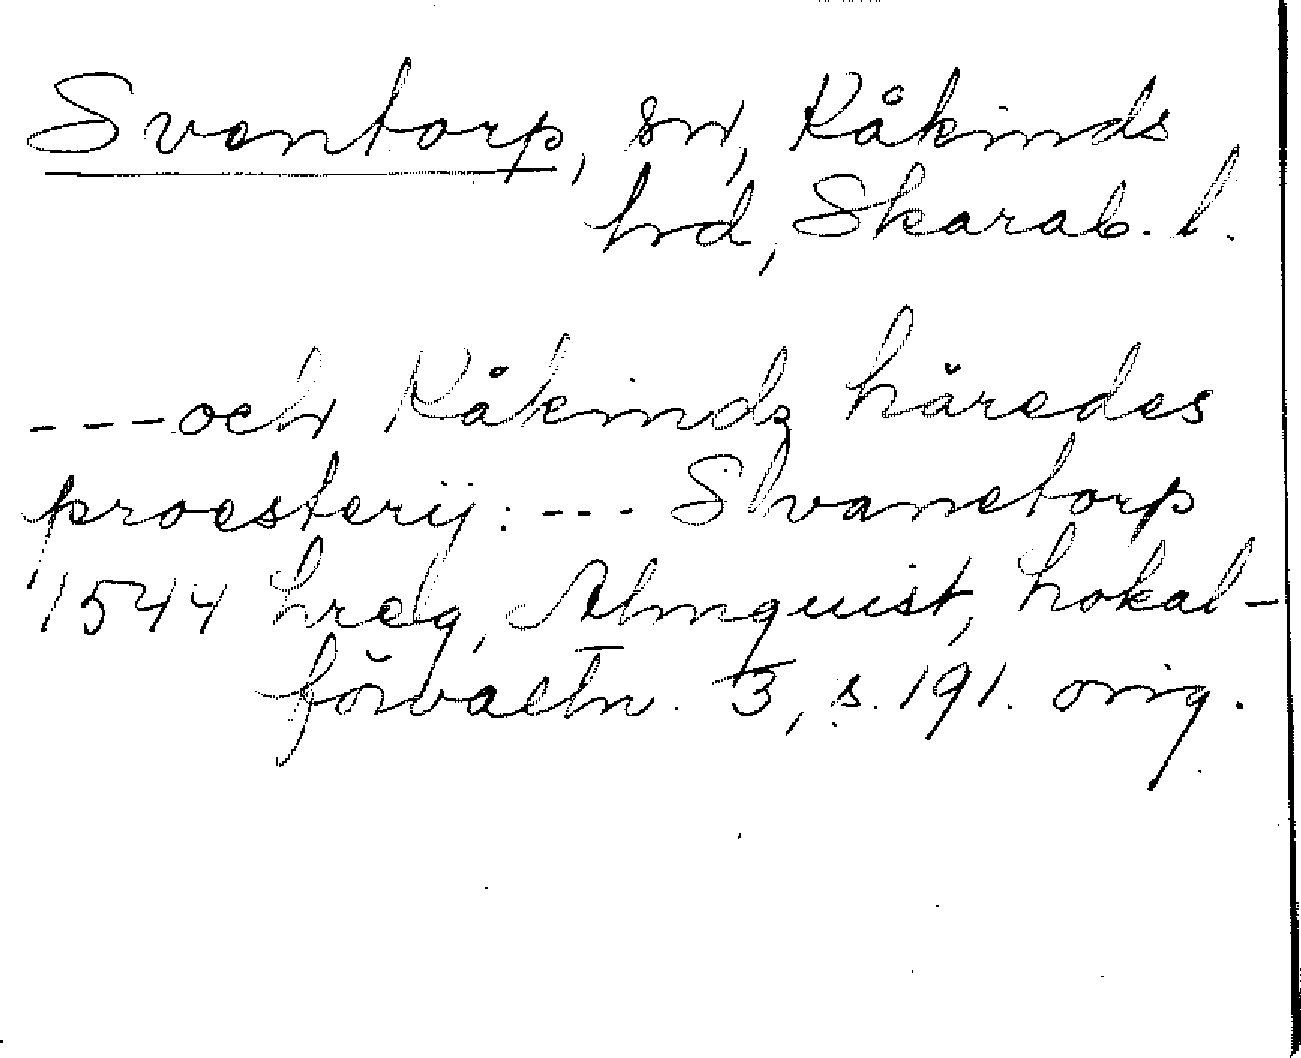 Sventorp, sn, Kåkinds
hrd, Skarab. l.
---och Kåkindz häredes
proesterij: --- Slvanetorp
1544 hreg, Almquist, Lokal-
förvaltn. 3, s. 191. orig.